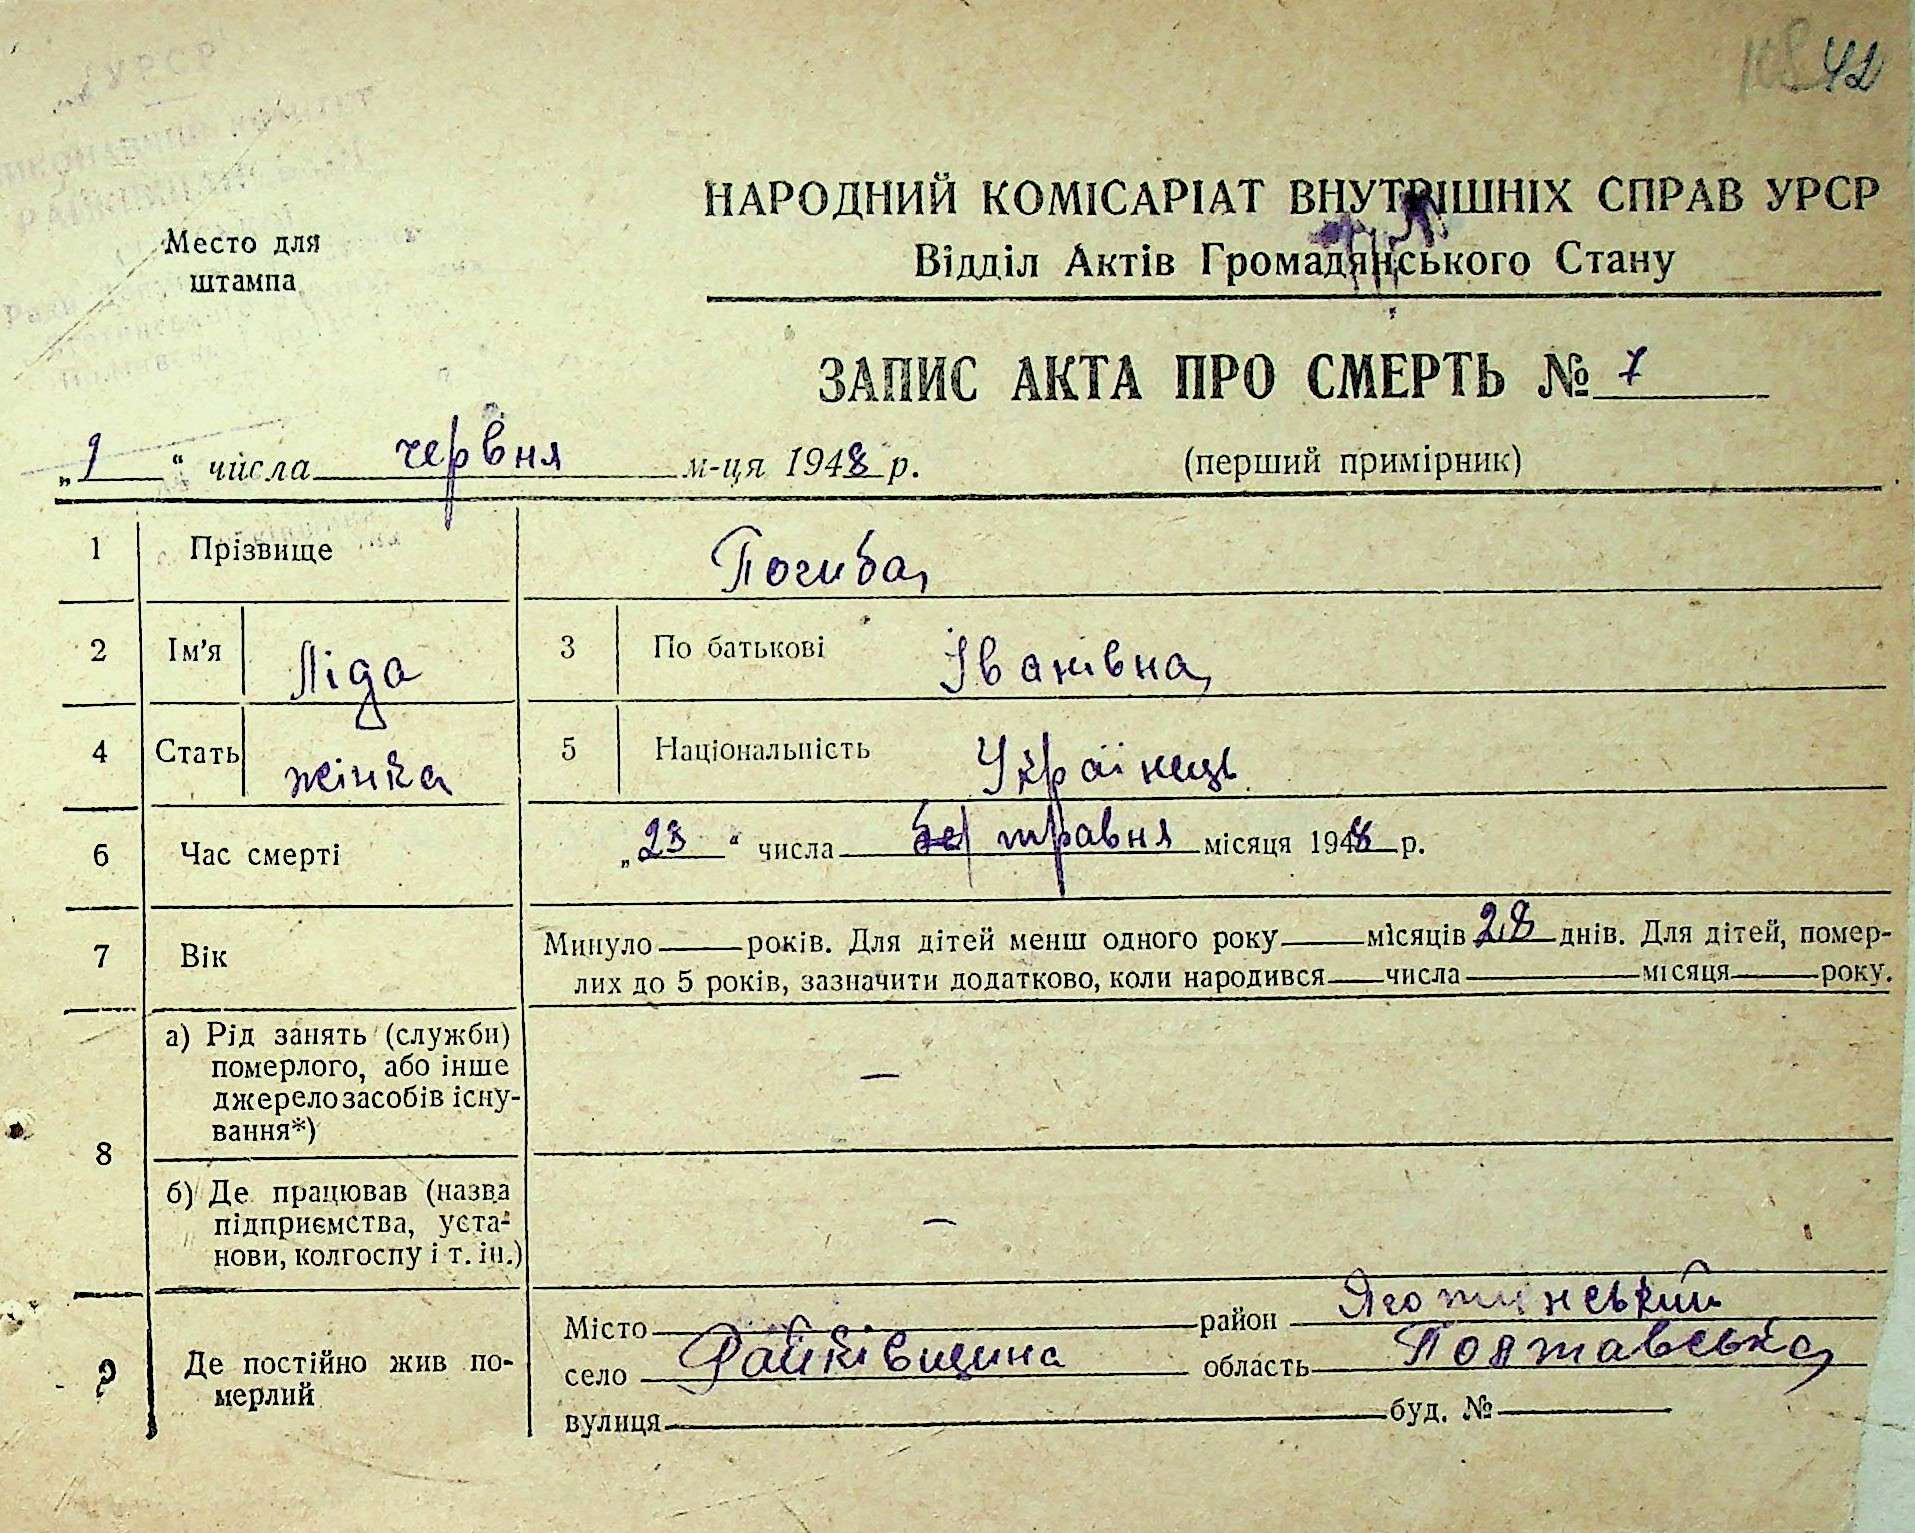 УРСР
42
ВИКОНАВЧИЙ КОМІТЕТ
НАРОДНИЙ КОМІСАРІАТ ВНУТРІШНІХ СПРАВ УРСР
Відділ Актів Громадянського Стану
Место для
штампа
ЗАПИС АКТА ПРО СМЕРТЬ № 7
„1“ числа червня м-ця 1948 р.
(перший примірник)
1 Прізвище Погиба
2 Ім'я Ліда 3 По батькові Іванівна
4 Стать жінка 5 Національність Українець
6 Час смерті „23“ числа травня місяця 1948 р.
7 Вік Минуло — років. Для дітей менш одного року — місяців 28 днів. Для дітей, помер-
лих до 5 років, зазначити додатково, коли народився — числа — місяця — року.
8 а) Рід занять (служби)
померлого, або інше
джерело засобів існу-
вання*) —
б) Де працював (назва
підприємства, уста-
нови, колгоспу і т. ін.) —
9 Де постійно жив по-
мерлий
Місто — район Яготинський
село Райківщина область Полтавська
вулиця — буд. № —